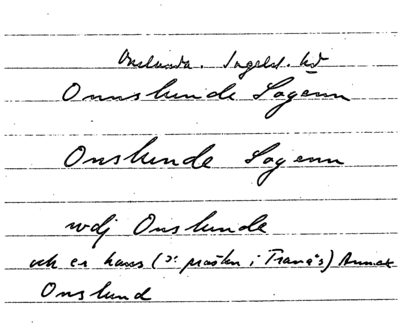 Onslunda. Ingelst. hd
Onnslunde Sogenn
Onslunde Sogenn
wdj Onslunde
och er hans (ɔ: prästen i Tranås) Annex
Onslund